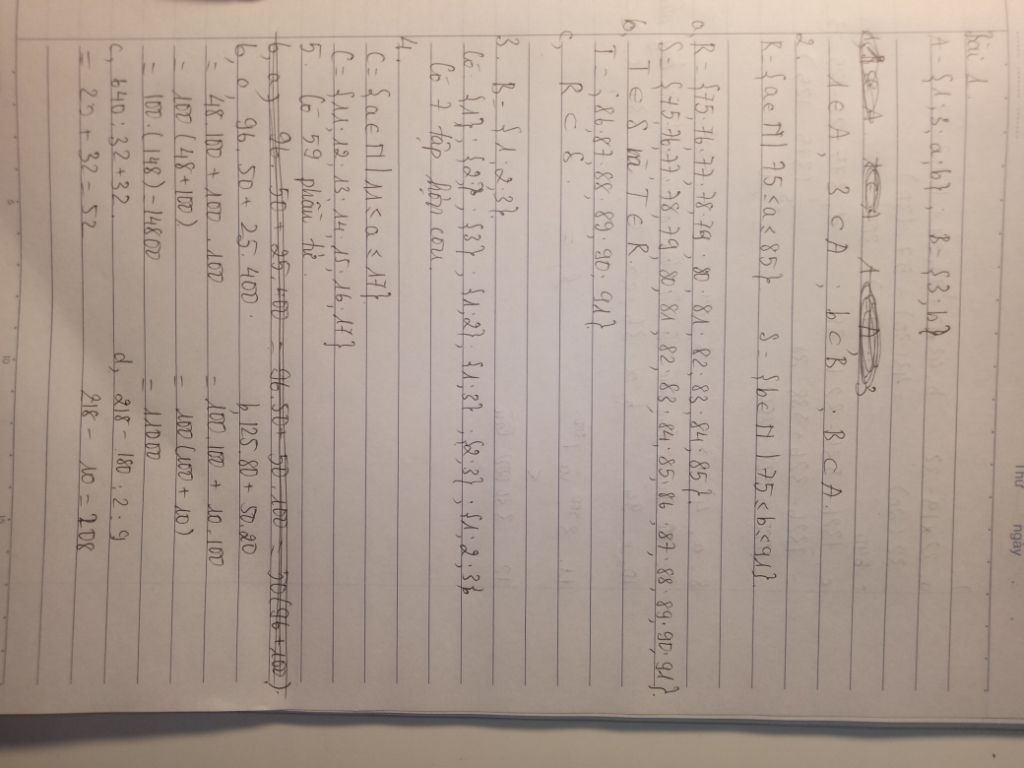 Thứ ngày
Bài 1.
A = {1; 3; a; b}; B = {3; b}
1 ∈ A; 3 ⊂ A; b ⊂ B; B ⊂ A.
2.
R = {a ∈ N | 75 ≤ a ≤ 85} S = {b ∈ N | 75 ≤ b ≤ 91}
a, R = {75; 76; 77; 78; 79; 80; 81; 82; 83; 84; 85}
S = {75; 76; 77; 78; 79; 80; 81; 82; 83; 84; 85; 86; 87; 88; 89; 90; 91}
b, T ∈ S mà T ∈ R
T = {86; 87; 88; 89; 90; 91}
c, R ⊂ S.
3. B = {1; 2; 3}
Có {1}; {2}; {3}; {1; 2}; {1; 3}; {2; 3}; {1; 2; 3}
Có 7 tập hợp con.
4.
C = {a ∈ N | 11 ≤ a ≤ 17}
C = {11; 12; 13; 14; 15; 16; 17}
5. Có 59 phần tử.
6, a, 96 50 + 25 400 = 96.50 + 50.100 = 50(96 + 100)
6, a, 96.50 + 25.400. b, 125.80 + 50.20
= 48.100 + 100.100 = 100.100 + 10.100
= 100(48 + 100) = 100(100 + 10)
= 100.(148) = 14800 = 11000
c, 640 : 32 + 32. d, 218 - 180 : 2 : 9
= 20 + 32 = 52 218 - 10 = 208